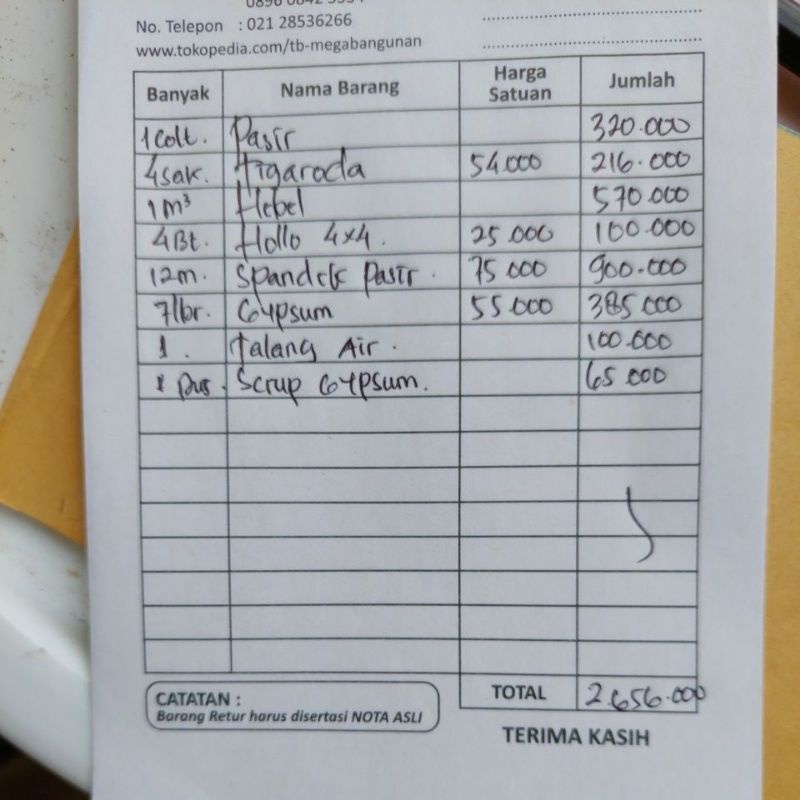 No. Telepon : 021 28536266
www.tokopedia.com/tb-megabangunan
Banyak Nama Barang Harga Satuan Jumlah
1 Colt. Pasir 320.000
4 sak. Tigaroda 54.000 216.000
1 m³ Hebel 570.000
4 Bt. Hollo 4x4. 25.000 100.000
12 m. Spandek Pasir. 75.000 900.000
7 lbr. Gypsum 55.000 385.000
1. Talang Air. 100.000
1 Dus. Scrup Gypsum. 65.000
TOTAL 2.656.000
CATATAN :
Barang Retur harus disertasi NOTA ASLI
TERIMA KASIH